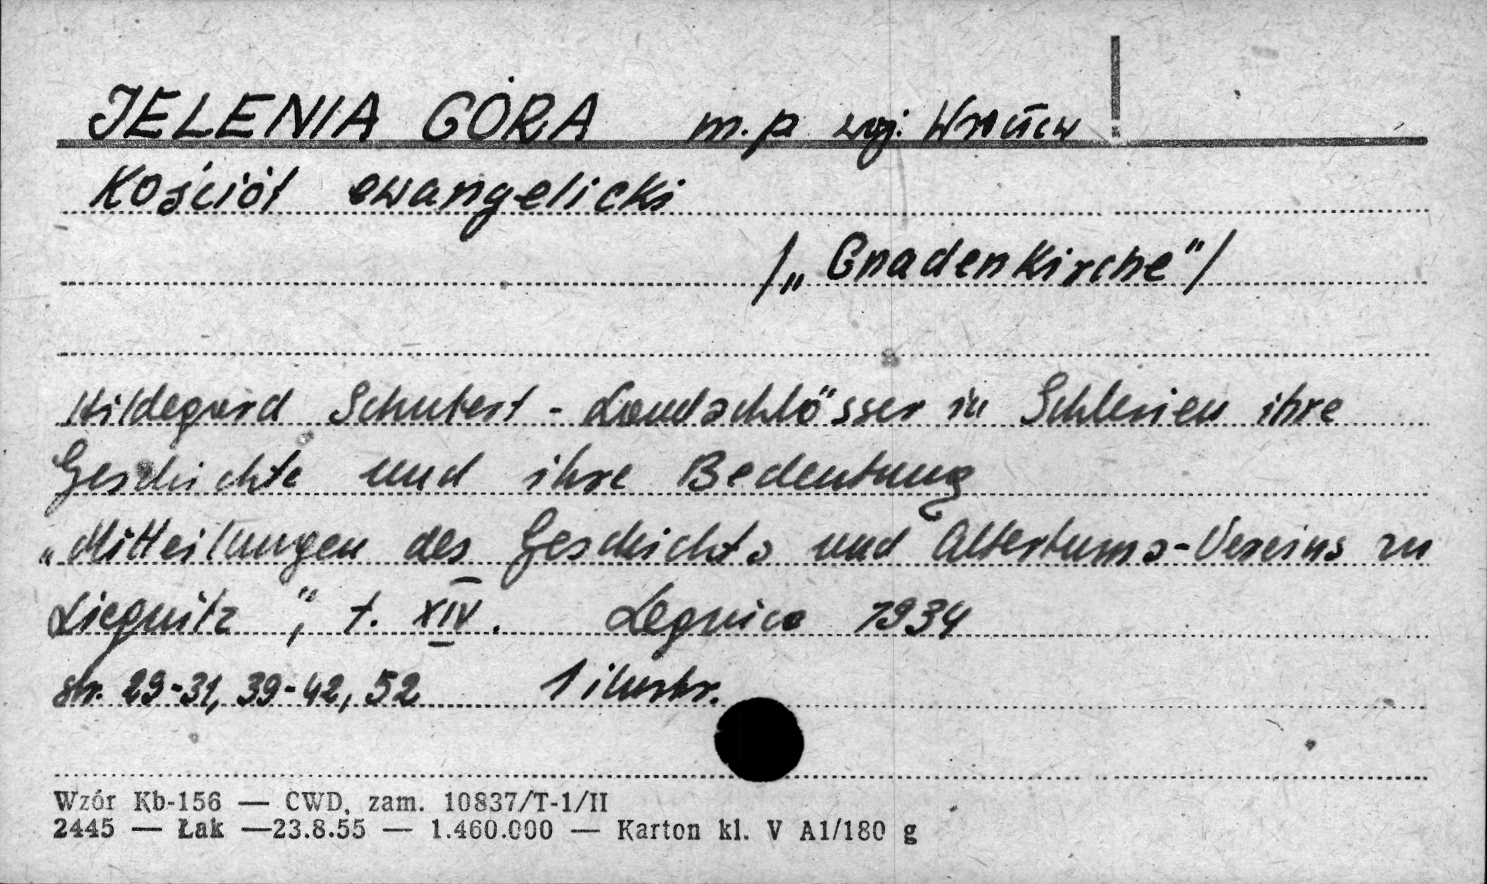 JELENIA GÓRA m.p woj. Wrocław
Kościół ewangelicki
/„Gnadenkirche"/
Hildegard Schubert - Landschlösser in Schlesien ihre
Geschichte und ihre Bedeutung
„Mitteilungen des Geschichts und Altertums-Vereins zu
Liegnitz", t. XIV. Legnica 1934
str. 29-31, 39-42, 52 1 ilustr.
Wzór Kb-156 — CWD, zam. 10837/T-1/II
2445 — Łak —23.8.55 — 1.460.000 — Karton kl. V A1/180 g